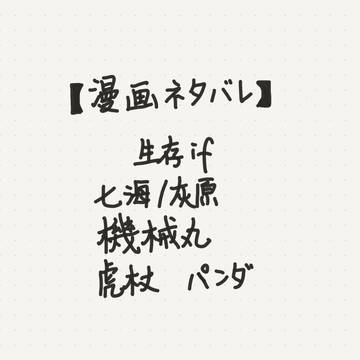 【漫画ネタバレ】
生存if
七海/灰原
機械丸
虎杖 パンダ